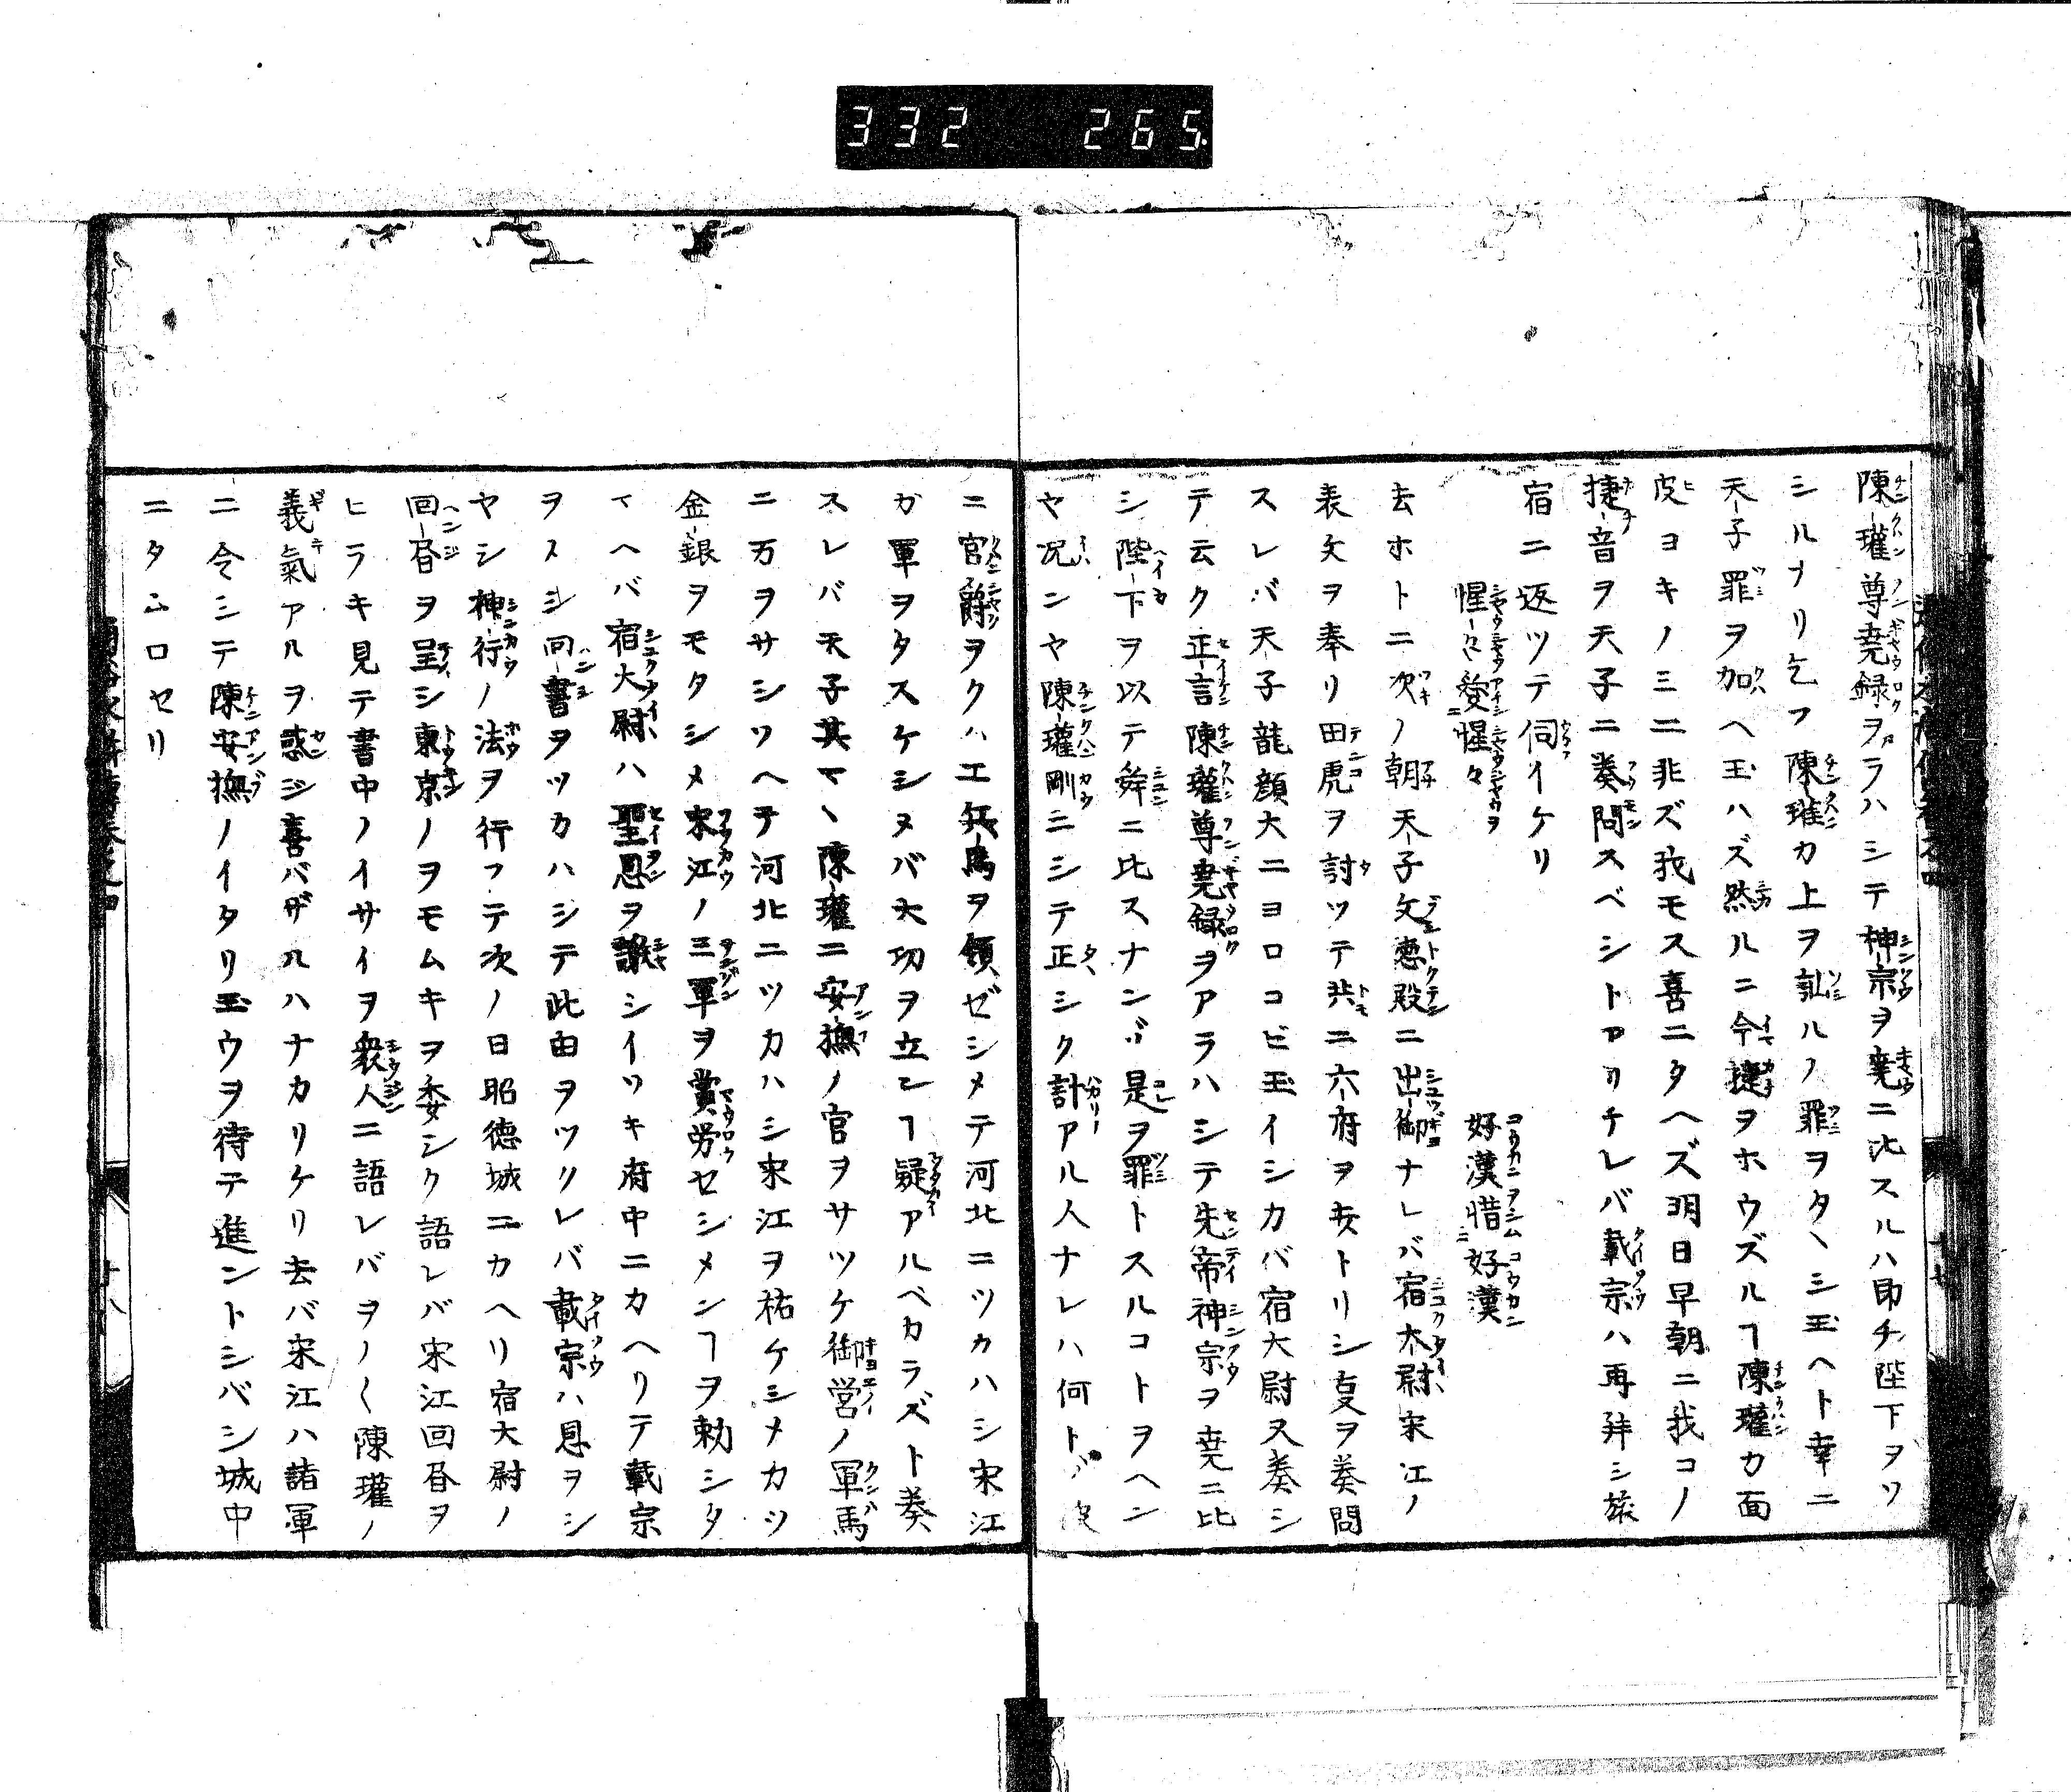 332 265
陳瓘尊堯録ヲアラハシテ神宗ヲ堯ニ比スルハ即チ陛下ヲソ
シルナリ乞フ陳瓘カ上ヲ訕ルノ罪ヲタヽシ玉ヘト幸ニ
天子罪ヲ加ヘ玉ハズ然ルニ今捷ヲホウズルヿ陳瓘カ面
皮ヨキノミニ非ズ我モス喜ニタヘズ明日早朝ニ我コノ
捷音ヲ天子ニ奏問スベシトアリチレバ載宗ハ再拜シ旅
宿ニ返ツテ伺イケリ
惺々愛惺々 好漢惜好漢
去ホトニ次ノ朝天子文徳殿ニ出御ナレバ宿太尉宋江ノ
表文ヲ奉リ田虎ヲ討ツテ共ニ六府ヲ失トリシ叓ヲ奏問
スレバ天子龍顔大ニヨロコビ玉イシカバ宿大尉又奏シ
テ云ク正言陳瓘尊堯録ヲアラハシテ先帝神宗ヲ堯ニ比
シ陛下ヲ以テ舜ニ比スナンゾ是ヲ罪トスルコトヲヘン
ヤ况ンヤ陳瓘剛ニシテ正シク計アル人ナレハ何トゾ
ニ官爵ヲクハエ兵馬ヲ領ゼシメテ河北ニツカハシ宋江
カ軍ヲタスケシヌバ大功ヲ立ンヿ疑アルベカラズト奏
スレバ天子其マヽ陳瓘ニ安撫ノ官ヲサツケ御営ノ軍馬
ニ万ヲサシソヘテ河北ニツカハシ宋江ヲ祐ケシメカツ
金銀ヲモタシメ宋江ノ三軍ヲ賞労セシメンヿヲ勅シタ
マヘバ宿大尉ハ聖恩ヲ謝シイソキ府中ニカヘリテ載宗
ヲスシ回書ヲツカハシテ此由ヲツクレバ載宗ハ恩ヲシ
ヤシ神行ノ法ヲ行フテ次ノ日昭徳城ニカヘリ宿大尉ノ
回昏ヲ呈シ東京ノヲモムキヲ委シク語レバ宋江回昏ヲ
ヒラキ見テ書中ノイサイヲ衆人ニ語レバヲノ〱陳瓘ノ
義氣アルヲ感ジ喜バザルハナカリケリ去バ宋江ハ諸軍
ニ令シテ陳安撫ノイタリ玉ウヲ待テ進ントシバシ城中
ニタムロセリ